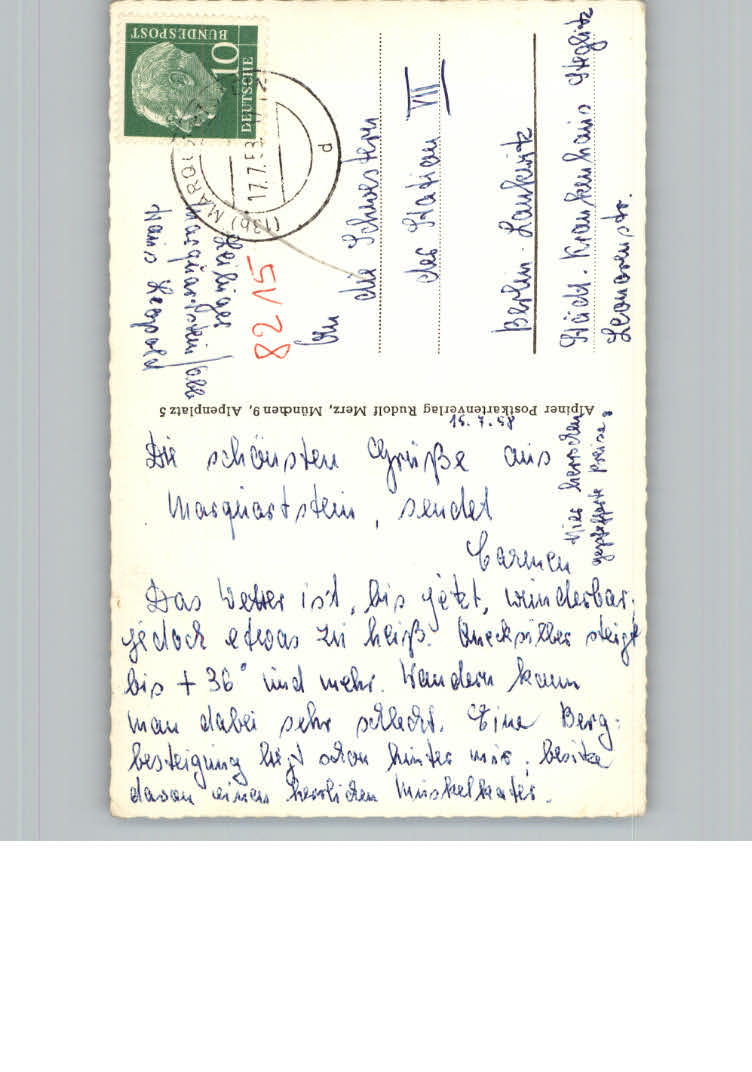 DEUTSCHE
BUNDESPOST
10
(13b) MARQU
17.7.58
d
8215
Marquartstein / Obb
An
die Schwestern
der Station VII
Berlin-Lankwitz
Städt. Krankenhaus Steglitz
Leonorenstr.
Alpiner Postkartenverlag Rudolf Merz, München 9, Alpenplatz 5
15.7.58
Die schönsten Grüße aus
Marquartstein, sendet
Carmen
Hier herrschen
gepfefferte Preise
Das Wetter ist, bis jetzt, wunderbar,
jedoch etwas zu heiß. Quecksilber steigt
bis + 36° und mehr. Wandern kann
man dabei sehr schlecht. Eine Berg-
besteigung liegt schon hinter mir, besitze
davon einen herrlichen Muskelkater.